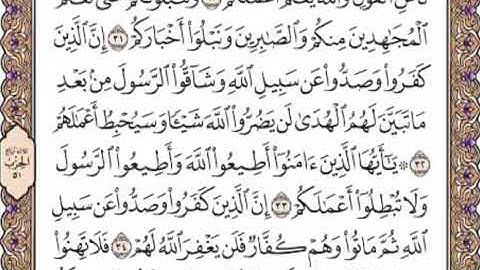 لَحْنِ ٱلْقَوْلِ وَٱللَّهُ يَعْلَمُ أَعْمَٰلَكُمْ ٣٠ وَلَنَبْلُوَنَّكُمْ حَتَّىٰ نَعْلَمَ
ٱلْمُجَٰهِدِينَ مِنكُمْ وَٱلصَّٰبِرِينَ وَنَبْلُوَا۟ أَخْبَارَكُمْ ٣١ إِنَّ ٱلَّذِينَ
كَفَرُوا۟ وَصَدُّوا۟ عَن سَبِيلِ ٱللَّهِ وَشَآقُّوا۟ ٱلرَّسُولَ مِنۢ بَعْدِ
مَا تَبَيَّنَ لَهُمُ ٱلْهُدَىٰ لَن يَضُرُّوا۟ ٱللَّهَ شَيْـًٔا وَسَيُحْبِطُ أَعْمَٰلَهُمْ
٣٢ ۞ يَٰٓأَيُّهَا ٱلَّذِينَ ءَامَنُوٓا۟ أَطِيعُوا۟ ٱللَّهَ وَأَطِيعُوا۟ ٱلرَّسُولَ
وَلَا تُبْطِلُوٓا۟ أَعْمَٰلَكُمْ ٣٣ إِنَّ ٱلَّذِينَ كَفَرُوا۟ وَصَدُّوا۟ عَن سَبِيلِ
ٱللَّهِ ثُمَّ مَاتُوا۟ وَهُمْ كُفَّارٌ فَلَن يَغْفِرَ ٱللَّهُ لَهُمْ ٣٤ فَلَا تَهِنُوا۟
ثلاثة أرباع
الحزب
٥١